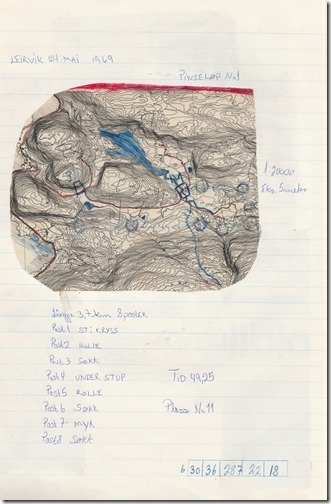 LEIRVIK 24 MAI 1969
PINSELØP No 1
1:20000
Løype 3,7 km 8 poster
Post 1 STIKRYSS
Post 2 KOLLE
Post 3 SØKK
Post 4 UNDER STUP
TID 49,25
Post 5 KOLLE
Post 6 SØKK
Plass Nr 11
Post 7 MYR
Post 8 SØKK
6 30 36 287 22 18